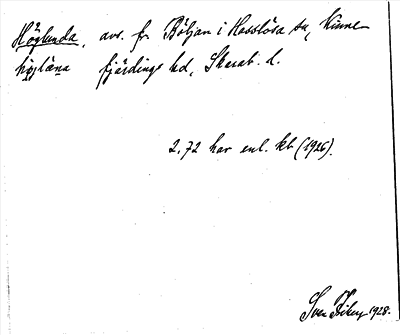 Höglunda, avs. fr. Böljan i Hasslösa sn, Kinne-
höglȧna fjärdings hd, Skarab. l.
2,72 har enl. kb (1926).
Sven Ekbo 1928.